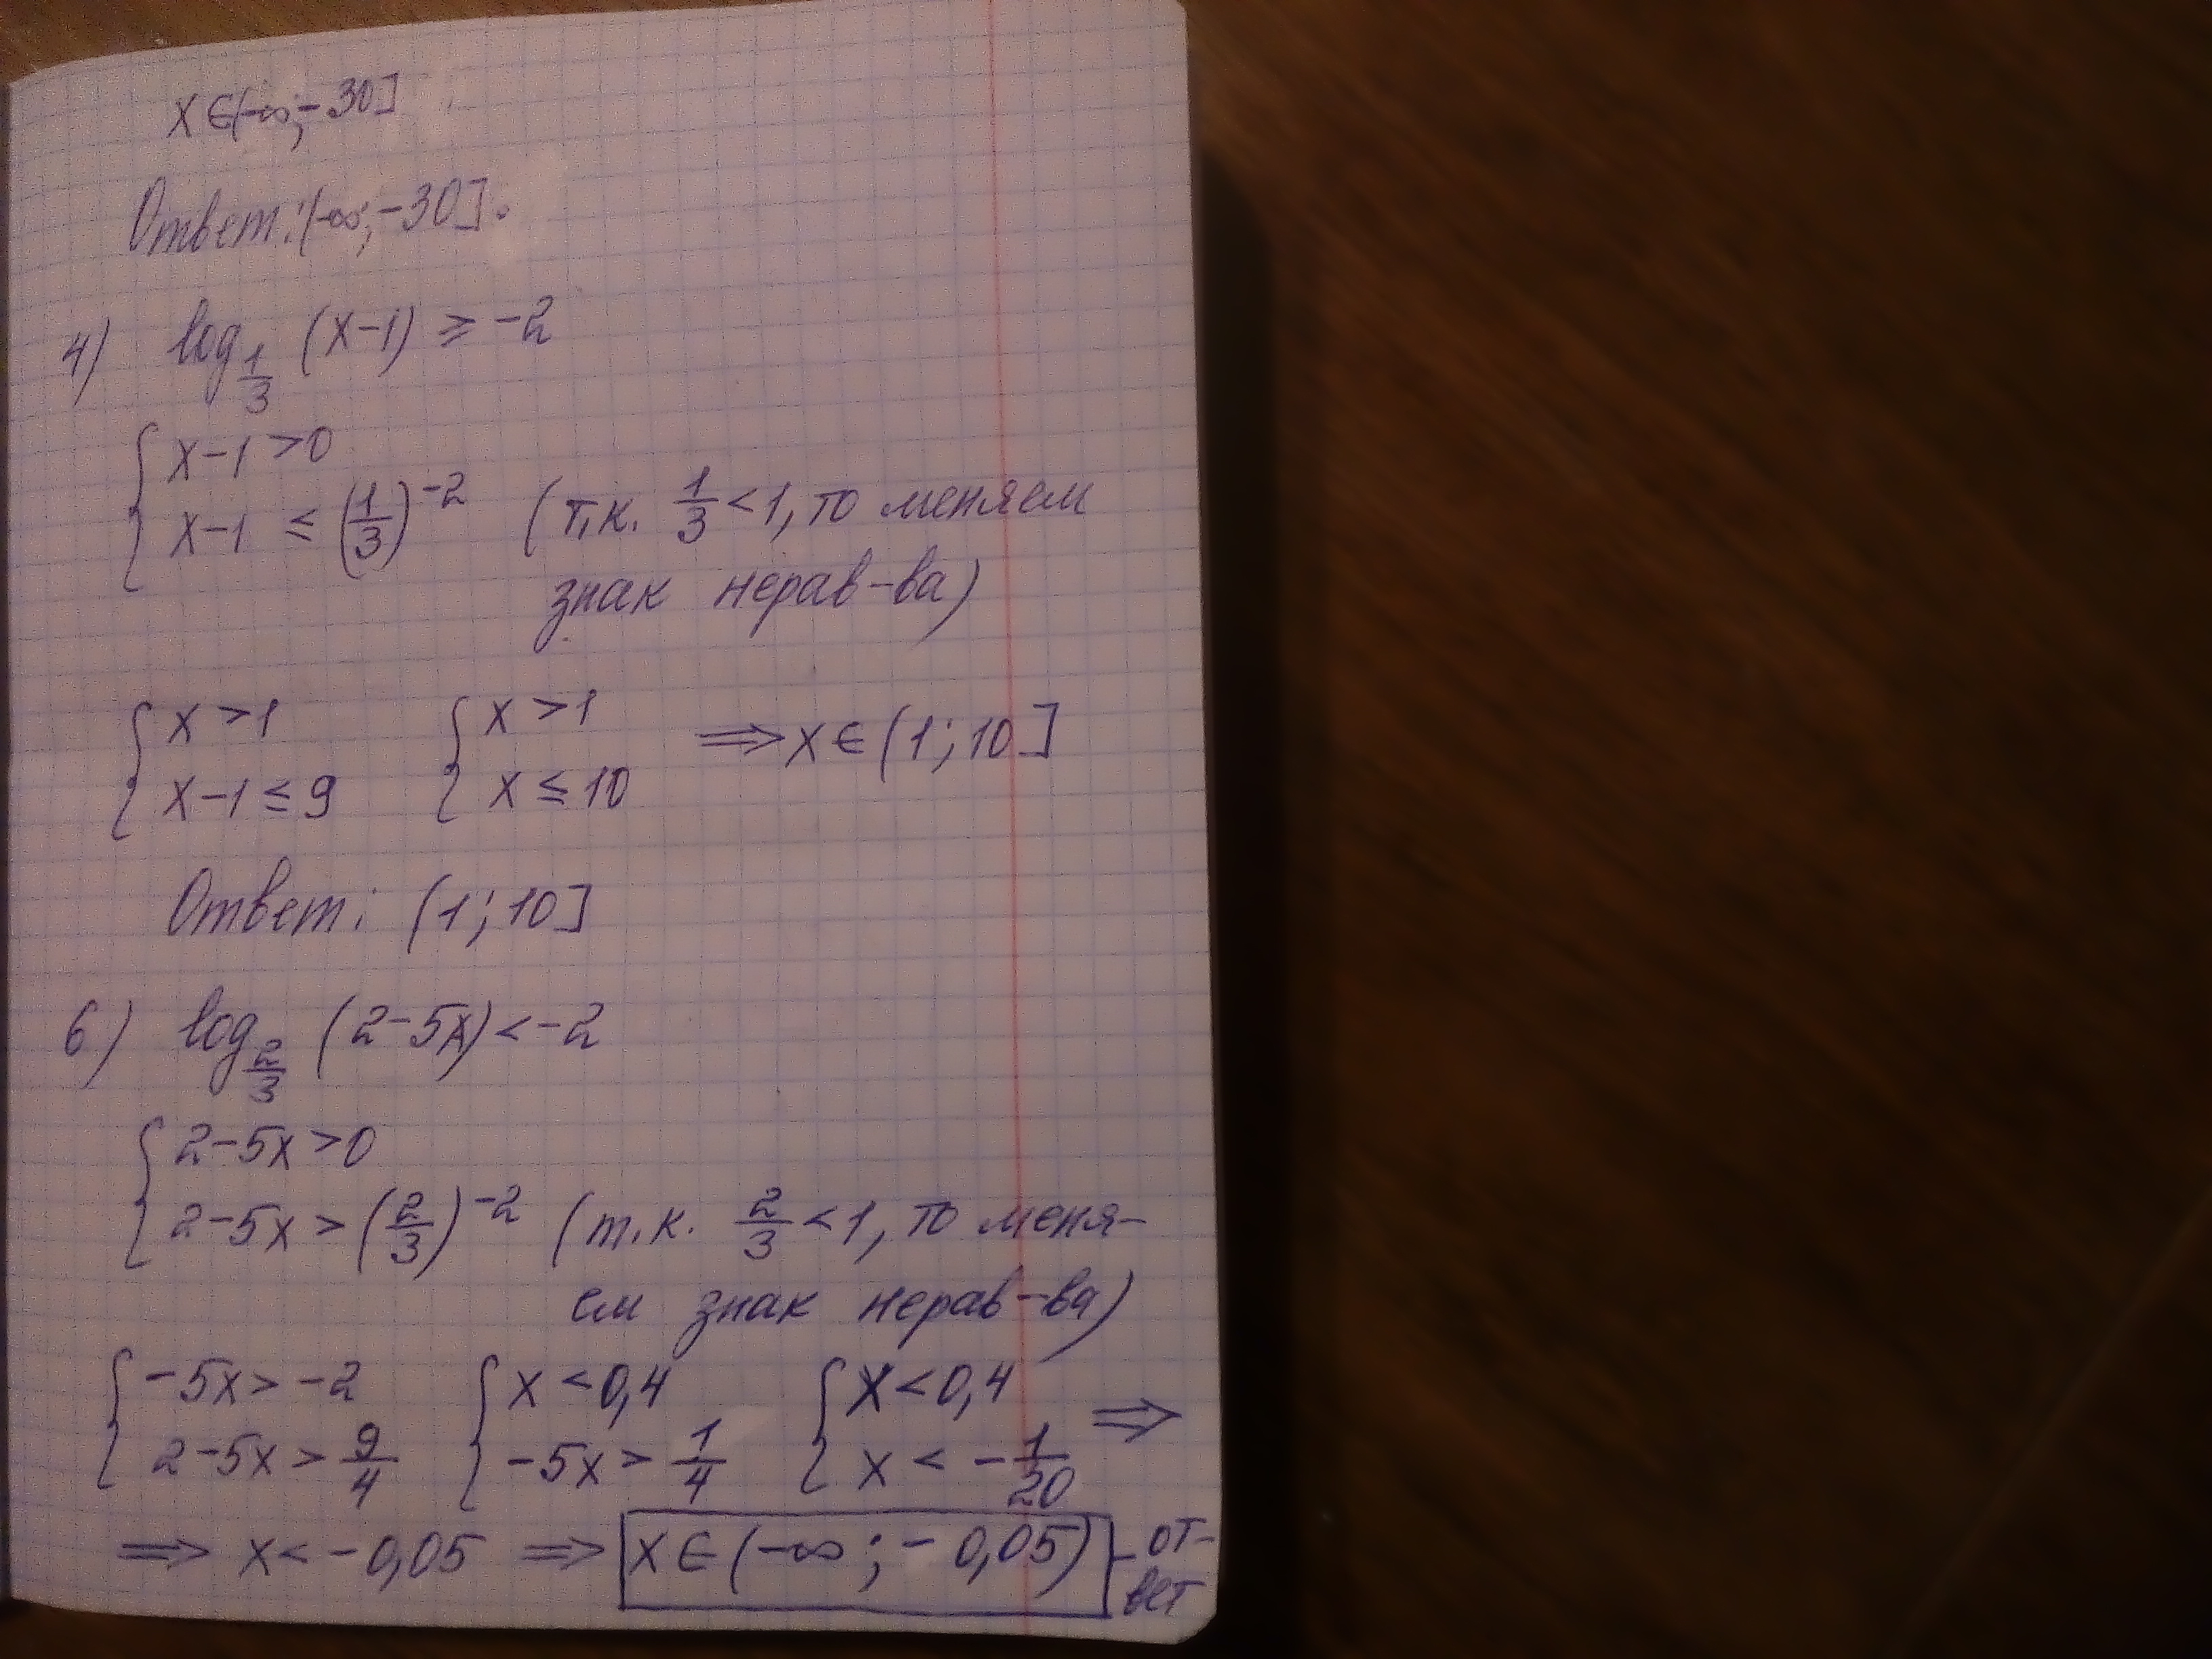 x ∈ (-∞; -30]
Ответ: (-∞; -30].
4) log_{1/3} (x-1) ≥ -2
{ x-1 > 0
{ x-1 ≤ (1/3)^{-2} (т.к. 1/3 < 1, то меняем
знак нерав-ва)
{ x > 1 { x > 1 ⟹ x ∈ (1; 10]
{ x-1 ≤ 9 { x ≤ 10
Ответ: (1; 10]
6) log_{2/3} (2-5x) < -2
{ 2-5x > 0
{ 2-5x > (2/3)^{-2} (т.к. 2/3 < 1, то меня-
ем знак нерав-ва)
{ -5x > -2 { x < 0,4 { x < 0,4 ⟹
{ 2-5x > 9/4 { -5x > 1/4 { x < -1/20
⟹ x < -0,05 ⟹ x ∈ (-∞; -0,05) - от-
вет